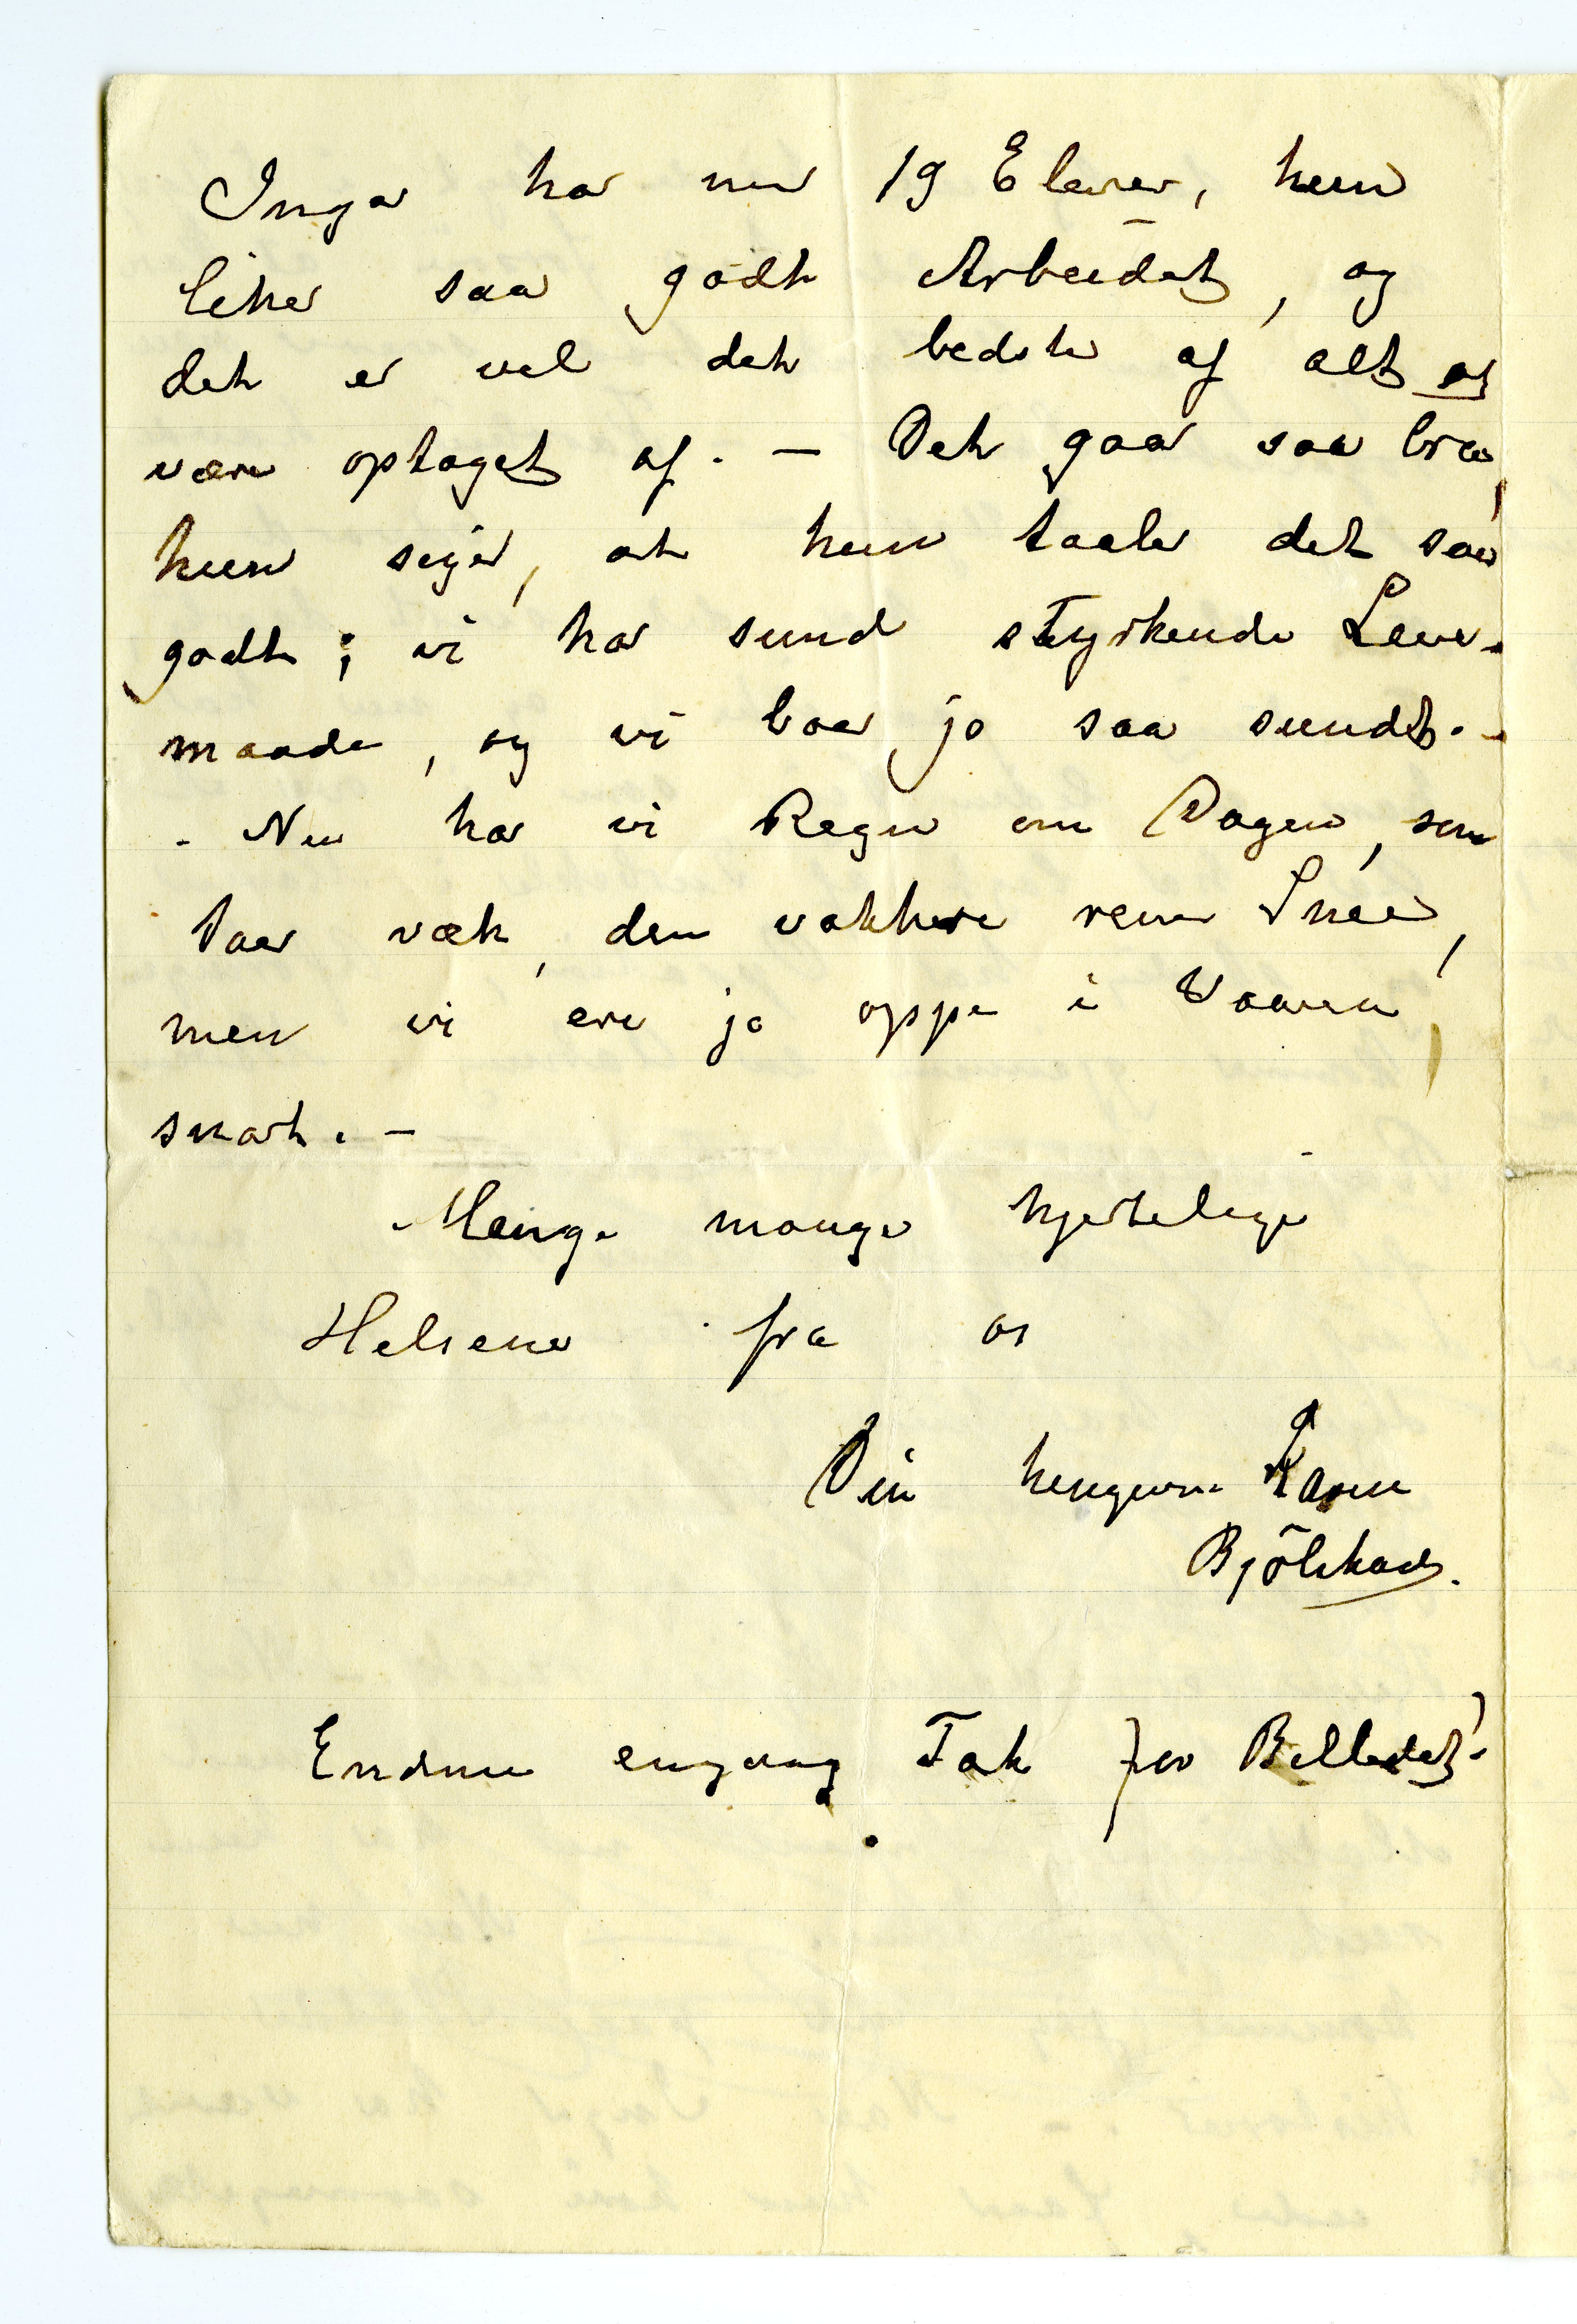 Inga har nu 19 Elever, hun
liker saa godt Arbeidet, og
det er vel det bedste af alt at
være optaget af. — Det gaar saa bra,
hun siger, at hun taaler det saa
godt; vi har sund styrkende Leve-
maade, og vi boer jo saa sundt. -
- Nu har vi Regn om Dagen, som
taer væk, den vakkre rene Snee,
men vi ere jo oppe i Vaaren,
snart. —
Mange mange hjertelige
Helsener fra os
Din hengivne Karen
Bjölstad.
Endnu engang Tak for Billedet!